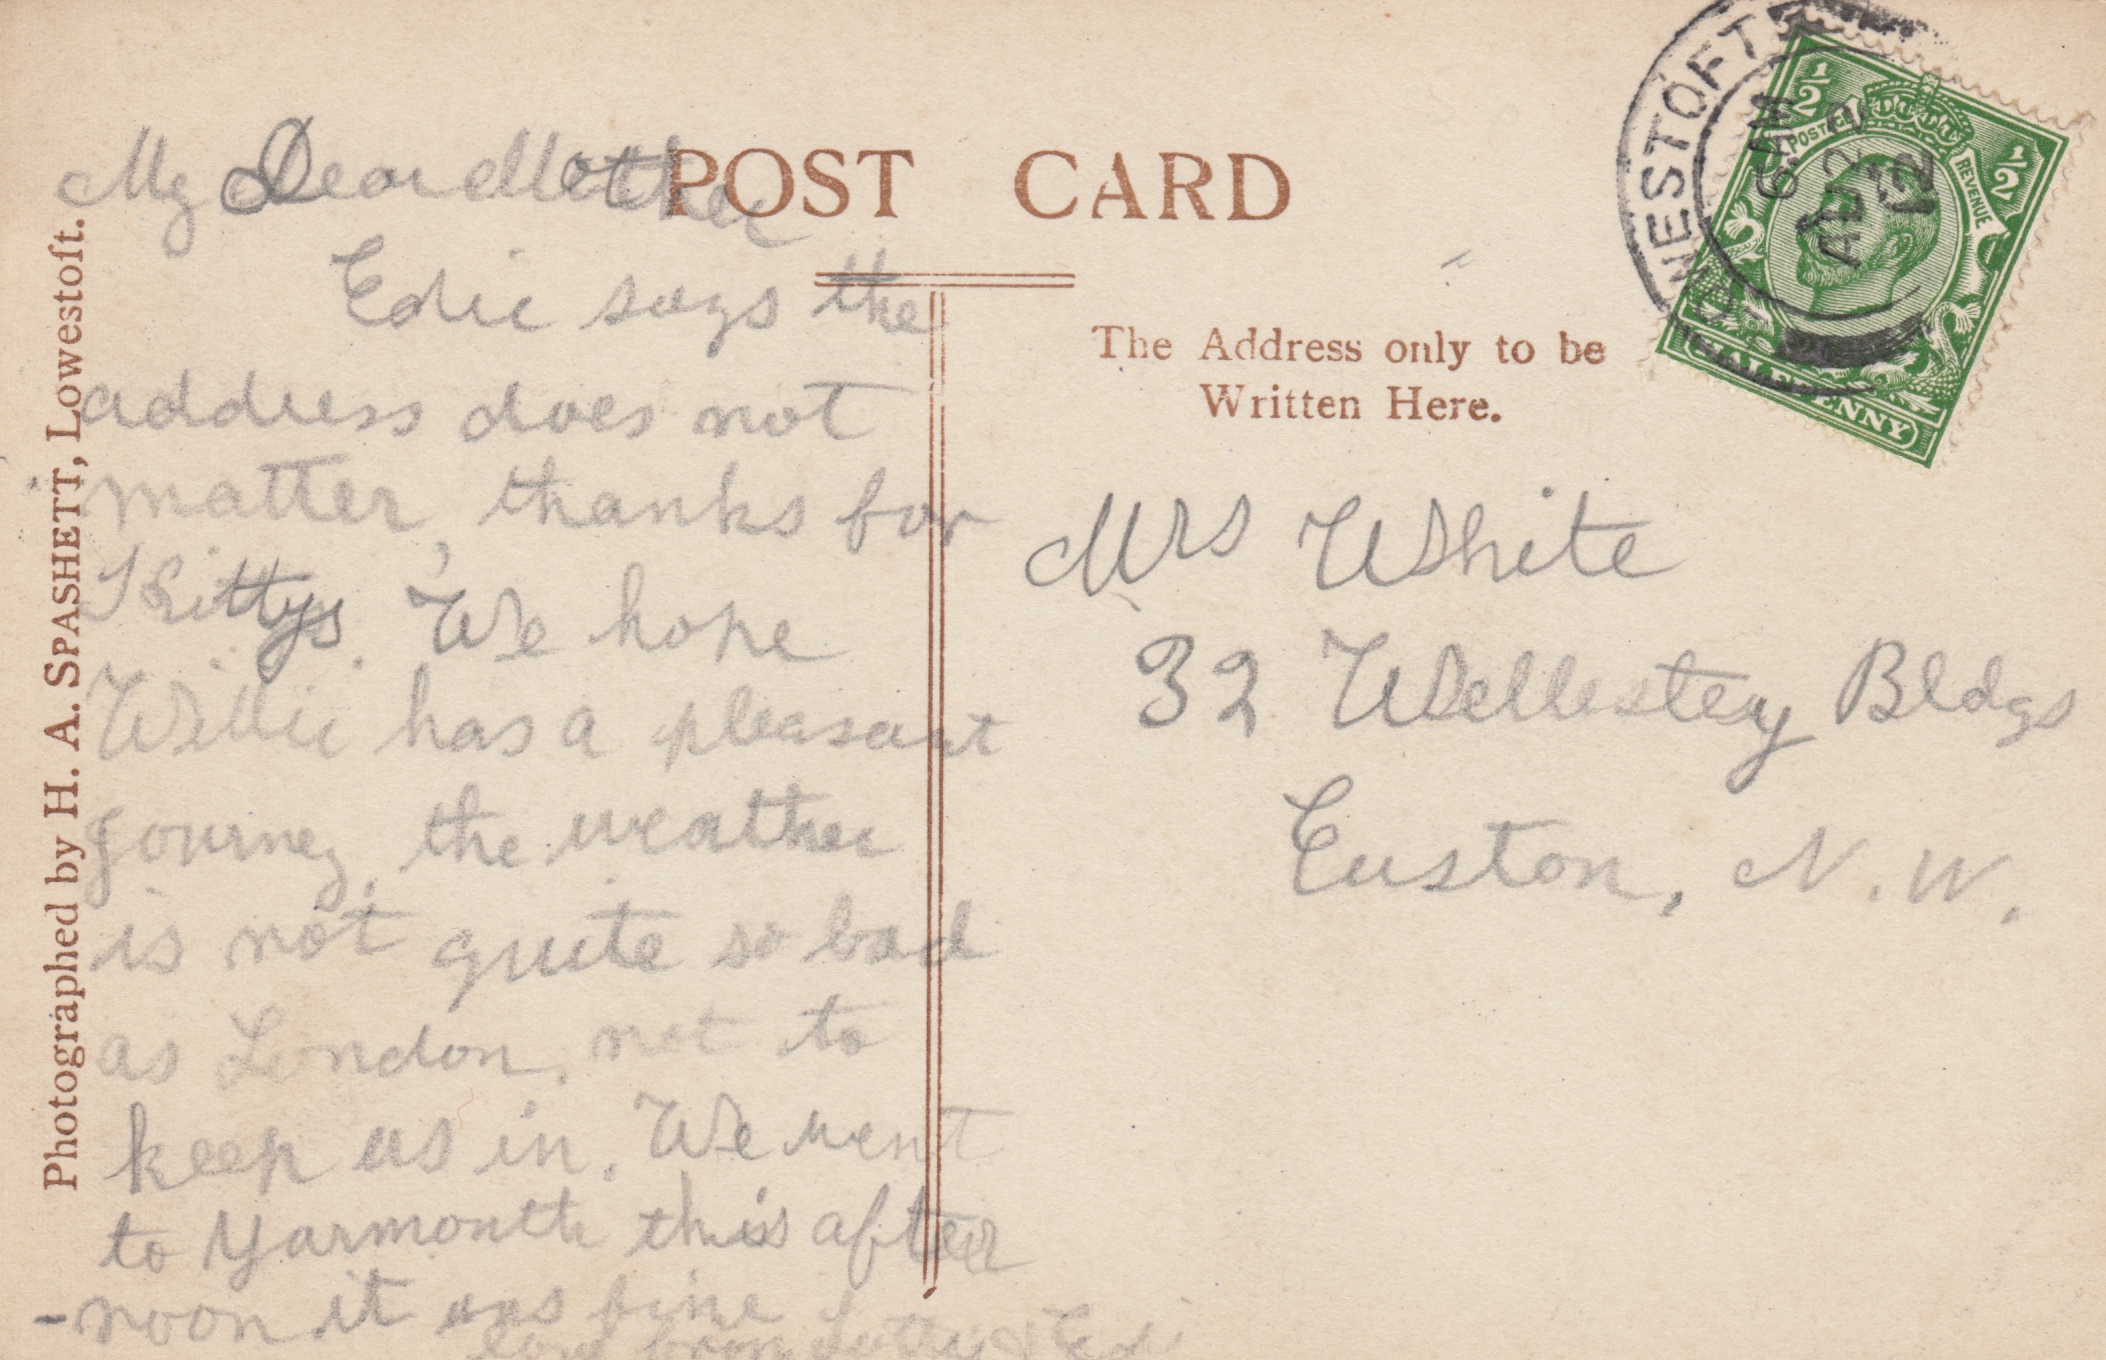 POST CARD
The Address only to be
Written Here.
Photographed by H. A. SPASHETT, Lowestoft.
My Dear Mother
Edie says the
address does not
matter, thanks for
Kittys. We hope
Willie has a pleasant
journey, the weather
is not quite so bad
as London, not to
keep us in. We went
to Yarmouth this after
-noon it was fine
love from Lotty & Edi
Mrs White
32 Wellesley Bldgs
Euston, N.W.
LOWESTOFT
6 AM
AU 22
12
1/2 1/2
POSTAGE REVENUE
HALFPENNY